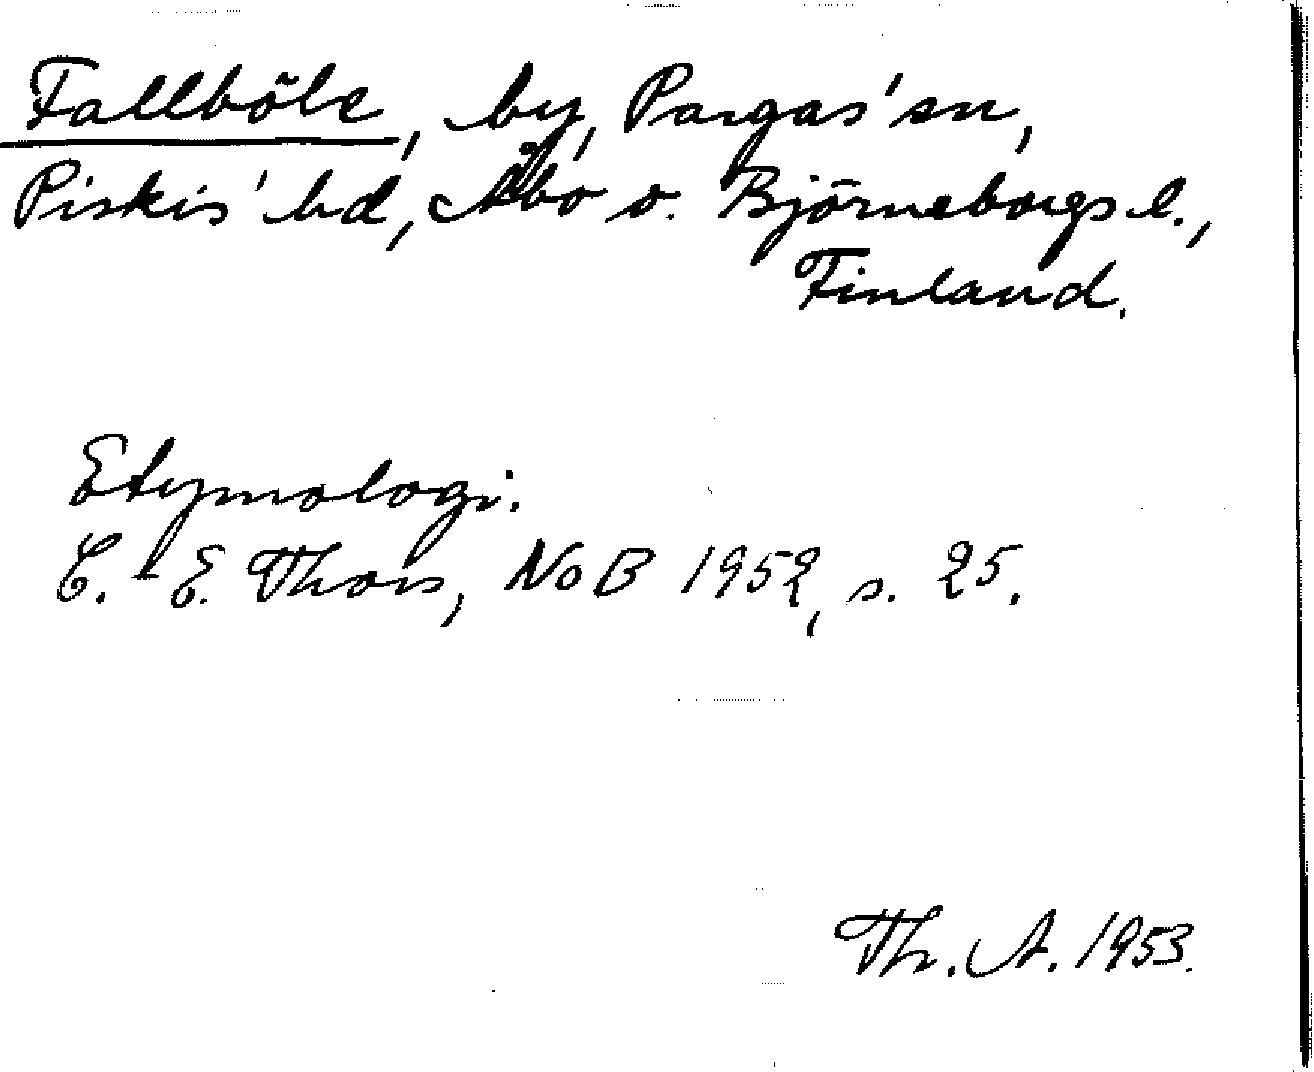 Fallböle, by, Pargas' sn,
Piskis' hd, Åbo o. Björneborgs l.,
Finland.
Etymologi.
C.-E. Thors, NoB 1952, s. 25.
Th. A. 1953.